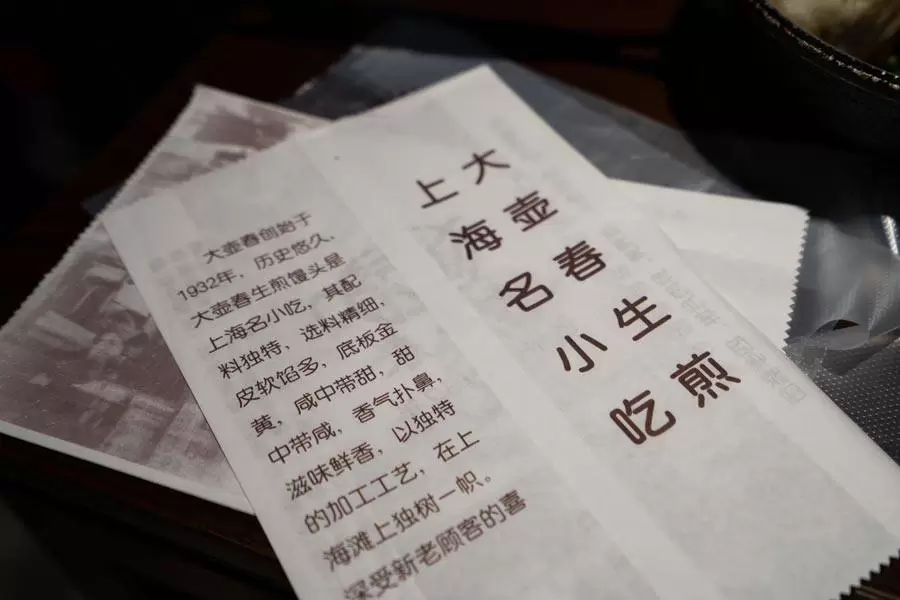 大壶春生煎
上海名小吃
大壶春创始于
1932年，历史悠久，
大壶春生煎馒头是
上海名小吃，其配
料独特，选料精细，
皮软馅多，底板金
黄，咸中带甜，甜
中带咸，香气扑鼻，
滋味鲜香，以独特
的加工工艺，在上
海滩上独树一帜。
深受新老顾客的喜